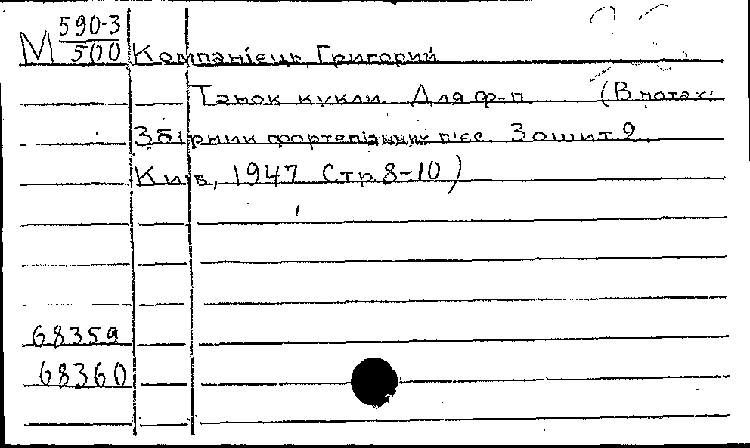 М 590-3
500 Компанієць, Григорий
Танок кукли. Для ф-п. (В нотах:
Збірник фортепіанних п'єс. Зошит 2.
Київ, 1947 Стр. 8-10)
68359
68360